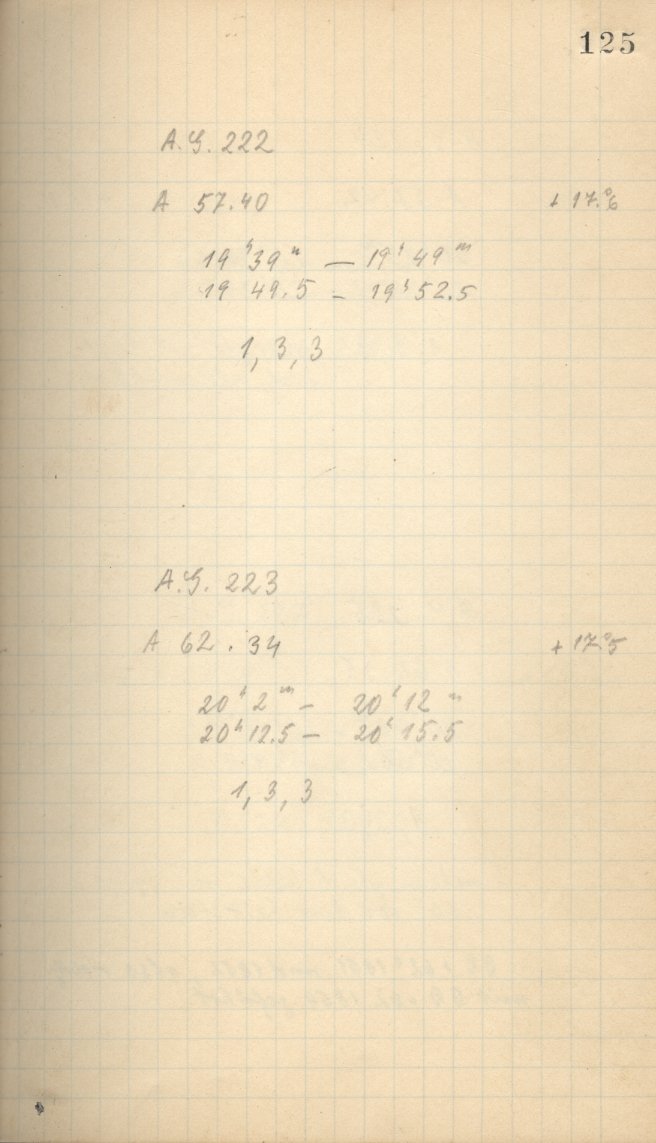 125
A.G. 222
A 57.40 + 17.°6
19ʰ39ᵐ — 19ʰ49ᵐ
19 49.5 – 19ʰ52.5
1, 3, 3
A.G. 223
A 62.34 + 17.°5
20ʰ2ᵐ – 20ʰ12ᵐ
20ʰ12.5 – 20ʰ15.5
1, 3, 3